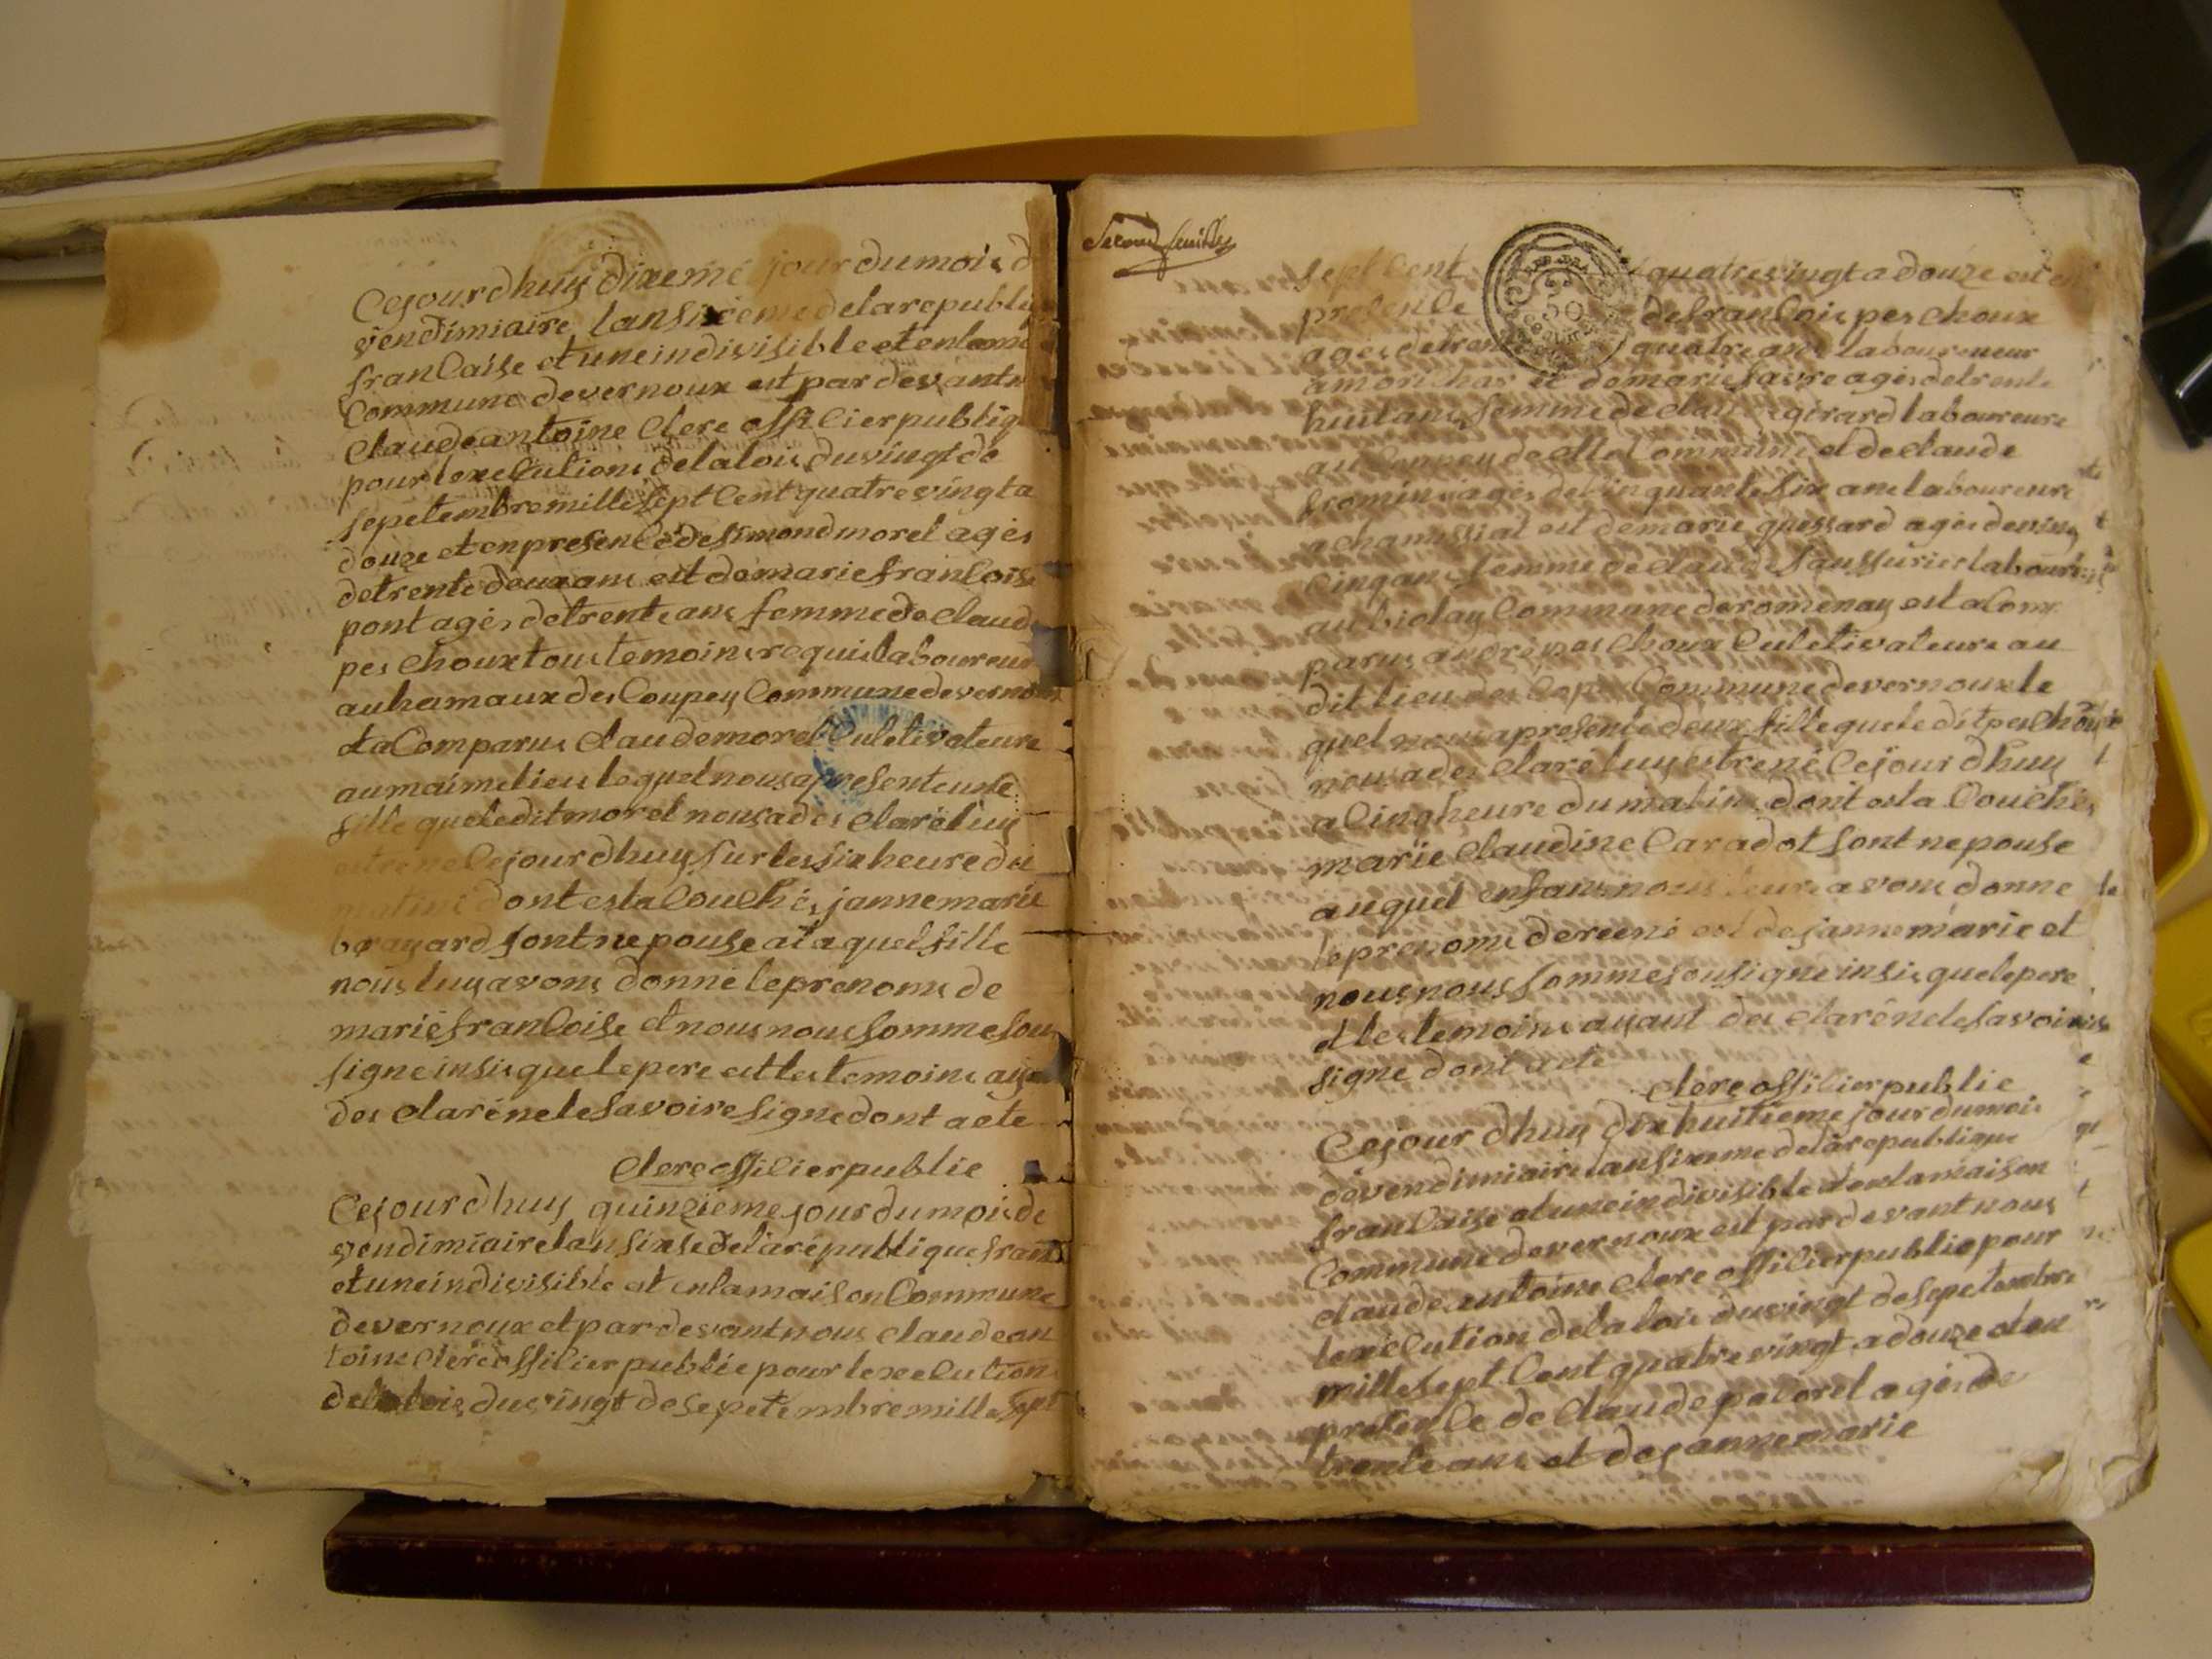 Cejourdhuy dixeme jour du mois d
vendimiaire lansixeme de la republi
francaise et une indivisible et en lamé
Commune devernoux est par devant n
Claude antoine Clere officier publiq
pour lexecutions delalois du vingt de
sepetembre mille sept Cent quatre vingt a
douze et en presence de simond morel ages
de trente deux ans est de marie francoise
pont ages de trente ans femme de Claud
pes Choux tous temoins requis laboureur
au hamaux des Coupey Commune devernoux
et a Comparus Claude morel Culetivateure
au maime lieu lequel nous a presente une
fille que le dit morel nous a des Claré luy
estre ne Cejourdhuy sur les six heure du
matins dont est a Couchés janne marie
brayard sont nepouse a la quel fille
nous luy avons donné le prenoms de
marie francoise et nous nous somme sou
signe insis que le pere est les temoins aya
des Claréne le savoire signe dont acte
Clere officier publie
Cejourdhuy quinzieme jour du mois de
vendimiaire lan sixse de la republique franc
et une indivisible et en la maison Commune
devernoux et par devant nous Claude an
toine Clere officier publie pour lexecution
delalois du vingt de sepetembre mille sept
Second feuilles
sept Cent quatre vingt a douze est en
presence de francois pes Choux
ages de trente quatre ans laboureur
a morichas et de marie favre ages de trente
huit ans femme de Claude girard laboureure
au Coupey de dite Commune et de Claude
fromin ages de Cinquante six ans laboureure
a chamissiat est de marie guessard ages de ving
Cinq ans femme de Claude saussuries laboure
au biolay Commune de romenay est a Com
parus andré pes Choux Culetivateure au
dit lieu des Copey Commune devernoux le
quel nous a presente deux fille que le dit pes Choux
nous a des Claré luy estre né Cejourdhuy
a Cinq heure du matin dont est a Couchés
marie Claudine Caradot sont nepouse
auquel enfans nous leure avons donne
le prenoms de reené est de janne marie et
nous nous somme sousigne insis que le pere
et les temoins ayant des Claréne le savoire
signe dont acte
Clere officier publie
Cejourdhuy dix huitieme jour du mois
de vendimiaire lan sixeme de la republique
francaise et une indivisible et en la maison
Commune devernoux est par devant nous
Claude antoine Clere officier publie pour
lexecution delalois du vingt de sepetembre
mille sept Cent quatre vingt a douze et en
presence de Claude pacorel ages de
trente ans et de janne marie